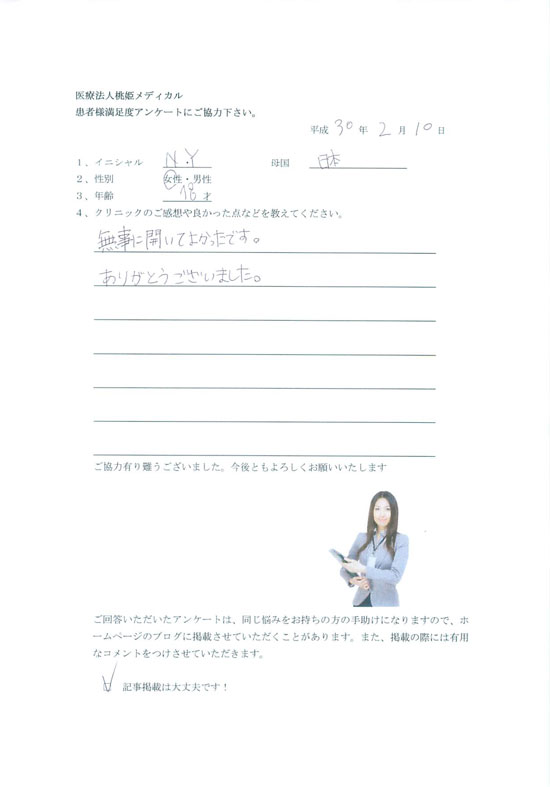 医療法人桃姫メディカル
患者様満足度アンケートにご協力下さい。
平成 30 年 2 月 10 日
1、イニシャル N.Y 母国 日本
2、性別 女性・男性
3、年齢 18 才
4、クリニックのご感想や良かった点などを教えてください。
無事に開いてよかったです。
ありがとうございました。
ご協力有り難うございました。今後ともよろしくお願いいたします
ご回答いただいたアンケートは、同じ悩みをお持ちの方の手助けになりますので、ホ
ームページのブログに掲載させていただくことがあります。また、掲載の際には有用
なコメントをつけさせていただきます。
記事掲載は大丈夫です！